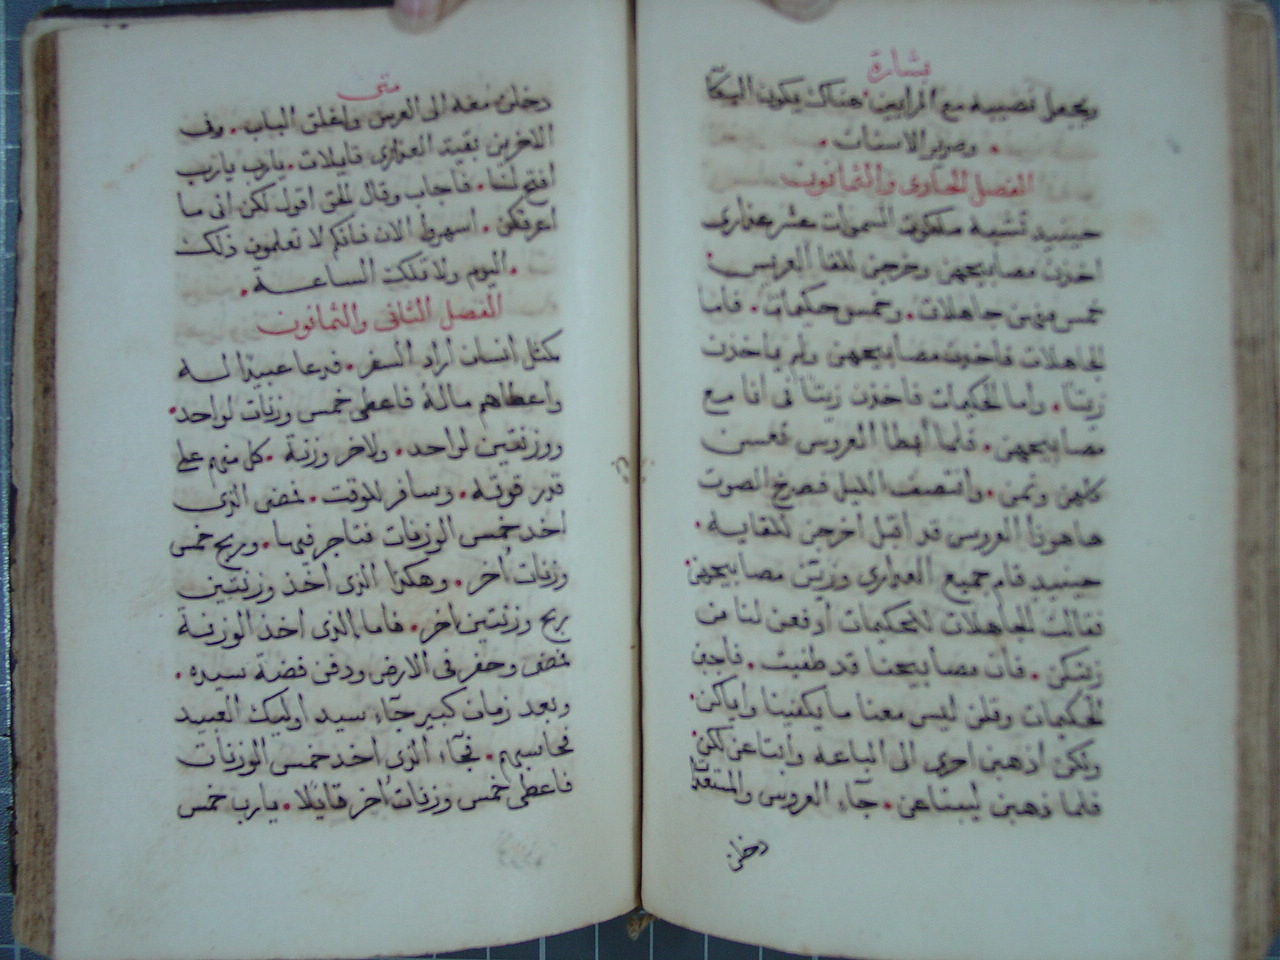 بشارة
ويجعل نصيبه مع المرايين هناك يكون البكآ
وصرير الاسنان
الفصل الحادى والثمانون
حينيد تشبه ملكوت السموات عشر عذارى
اخذن مصابيحهن وخرجن للقا العريس
خمس منهن جاهلات وخمس حكيمات فاما
الجاهلات فاخذن مصابيحهن ولم ياخذن
زيتا واما الحكيمات فاخذن زيتا فى انا مع
مصابيحهن فلما ابطا العروس نعسن
كلهن ونمن وانتصف الليل فصرخ الصوت
هاهوذا العروس قد اقبل اخرجن للقايه
حينيد قام جميع العذارى وزين مصابيحهن
فقالت الجاهلات للحكيمات ادفعن لنا من
زيتكن فان مصابيحنا قد طفيت فاجبن
الحكيمات وقلن ليس معنا ما يكفينا واياكن
ولكن اذهبن احرى الى الباعه وابتاعن لكن
فلما ذهبن ليبتاعن جآء العروس والمستعدات
دخلن
متى
دخلن معه الى العرس واغلق الباب وفى
الاخرين بقيت العذارى قايلات يارب يارب
افتح لنا فاجاب وقال الحق اقول لكن انى ما
اعرفكن اسهروا الان فانكم لا تعلمون ذلك
اليوم ولا تلك الساعة
الفصل الثانى والثمانون
كمثل انسان اراد السفر فدعا عبيدا له
واعطاهم ماله فاعطى خمس وزنات لواحد
ووزنتين لواحد ولاخر وزنة كل منهم على
قدر قوته وسافر للوقت فمضى الذى
اخد خمس الوزنات فتاجر فيها وربح خمس
وزنات اخر وهكذا الذى اخذ وزنتين
ربح وزنتين اخر فاما الذى اخذ الوزنة
فمضى وحفر فى الارض ودفن فضة سيده
وبعد زمان كبير جآء سيد اوليك العبيد
فحاسبهم فجآء الذى اخد خمس الوزنات
فاعطى خمس وزنات اخر قايلا يارب خمس